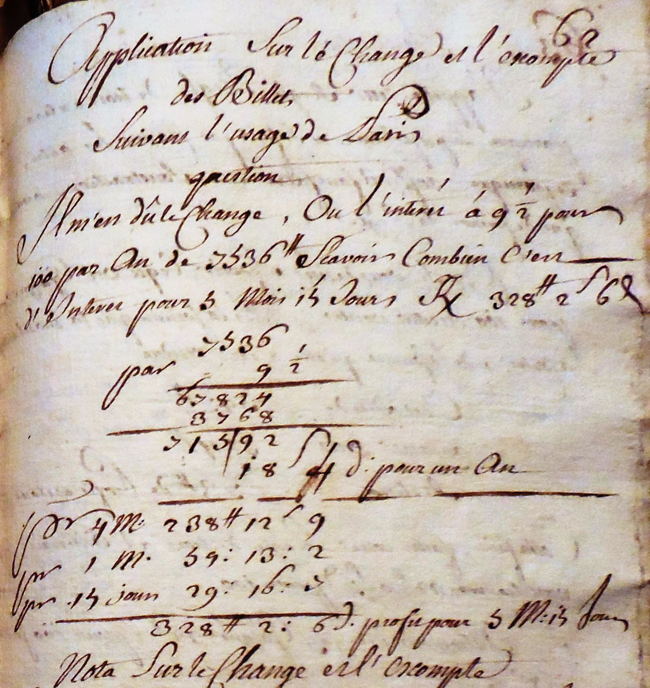 62
Application Sur le Change et l'exompte
des Billets
Suivant l'usage de Paris
question
Il m'en dû le Change, Ou l'intérêt à 9 1/2 pour
100 par An de 7536 ₶ Scavoir Combien C'est
d'Intérêt pour 5 Mois 15 Jours Rx 328 ₶ 2 s 6 d
7536
par 9 1/2
67824
3768
715|92
18 s 4 d. pour un An
pr 4 M. 238 ₶ 12 s 9
pr 1 M. 59: 13: 2
pr 15 jours 29: 16: 7
328 ₶ 2: 6 d. profit pour 5 M: 15 Jours
Nota Sur le Change et l'exompte